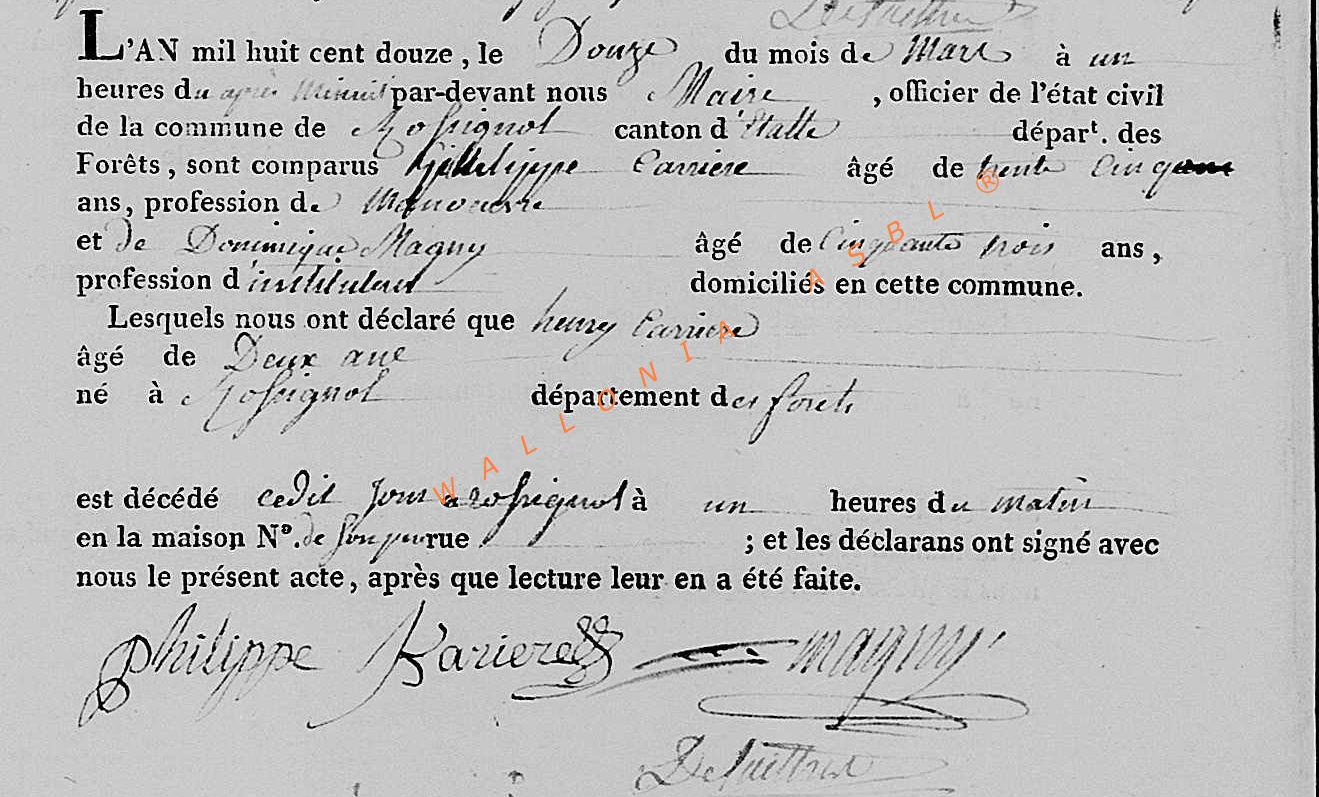 L'AN mil huit cent douze, le Douze du mois de Mars à un
heures du après Minuit par-devant nous Maire, officier de l'état civil
de la commune de Rossignol canton d'Etalle départ. des
Forêts, sont comparus philippe Carriere âgé de trente cinq
ans, profession de Manouvre
et de Dominique Magny âgé de Cinquante trois ans,
profession d'instituteur domiciliés en cette commune.
Lesquels nous ont déclaré que henry Carriere
âgé de Deux ans
né à Rossignol département des forêts
est décédé cedit Jour a rossignol à un heures du matin
en la maison Nº. de son pere rue ; et les déclarans ont signé avec
nous le présent acte, après que lecture leur en a été faite.
philippe Kariere magny
WALLONIA ASBL ®